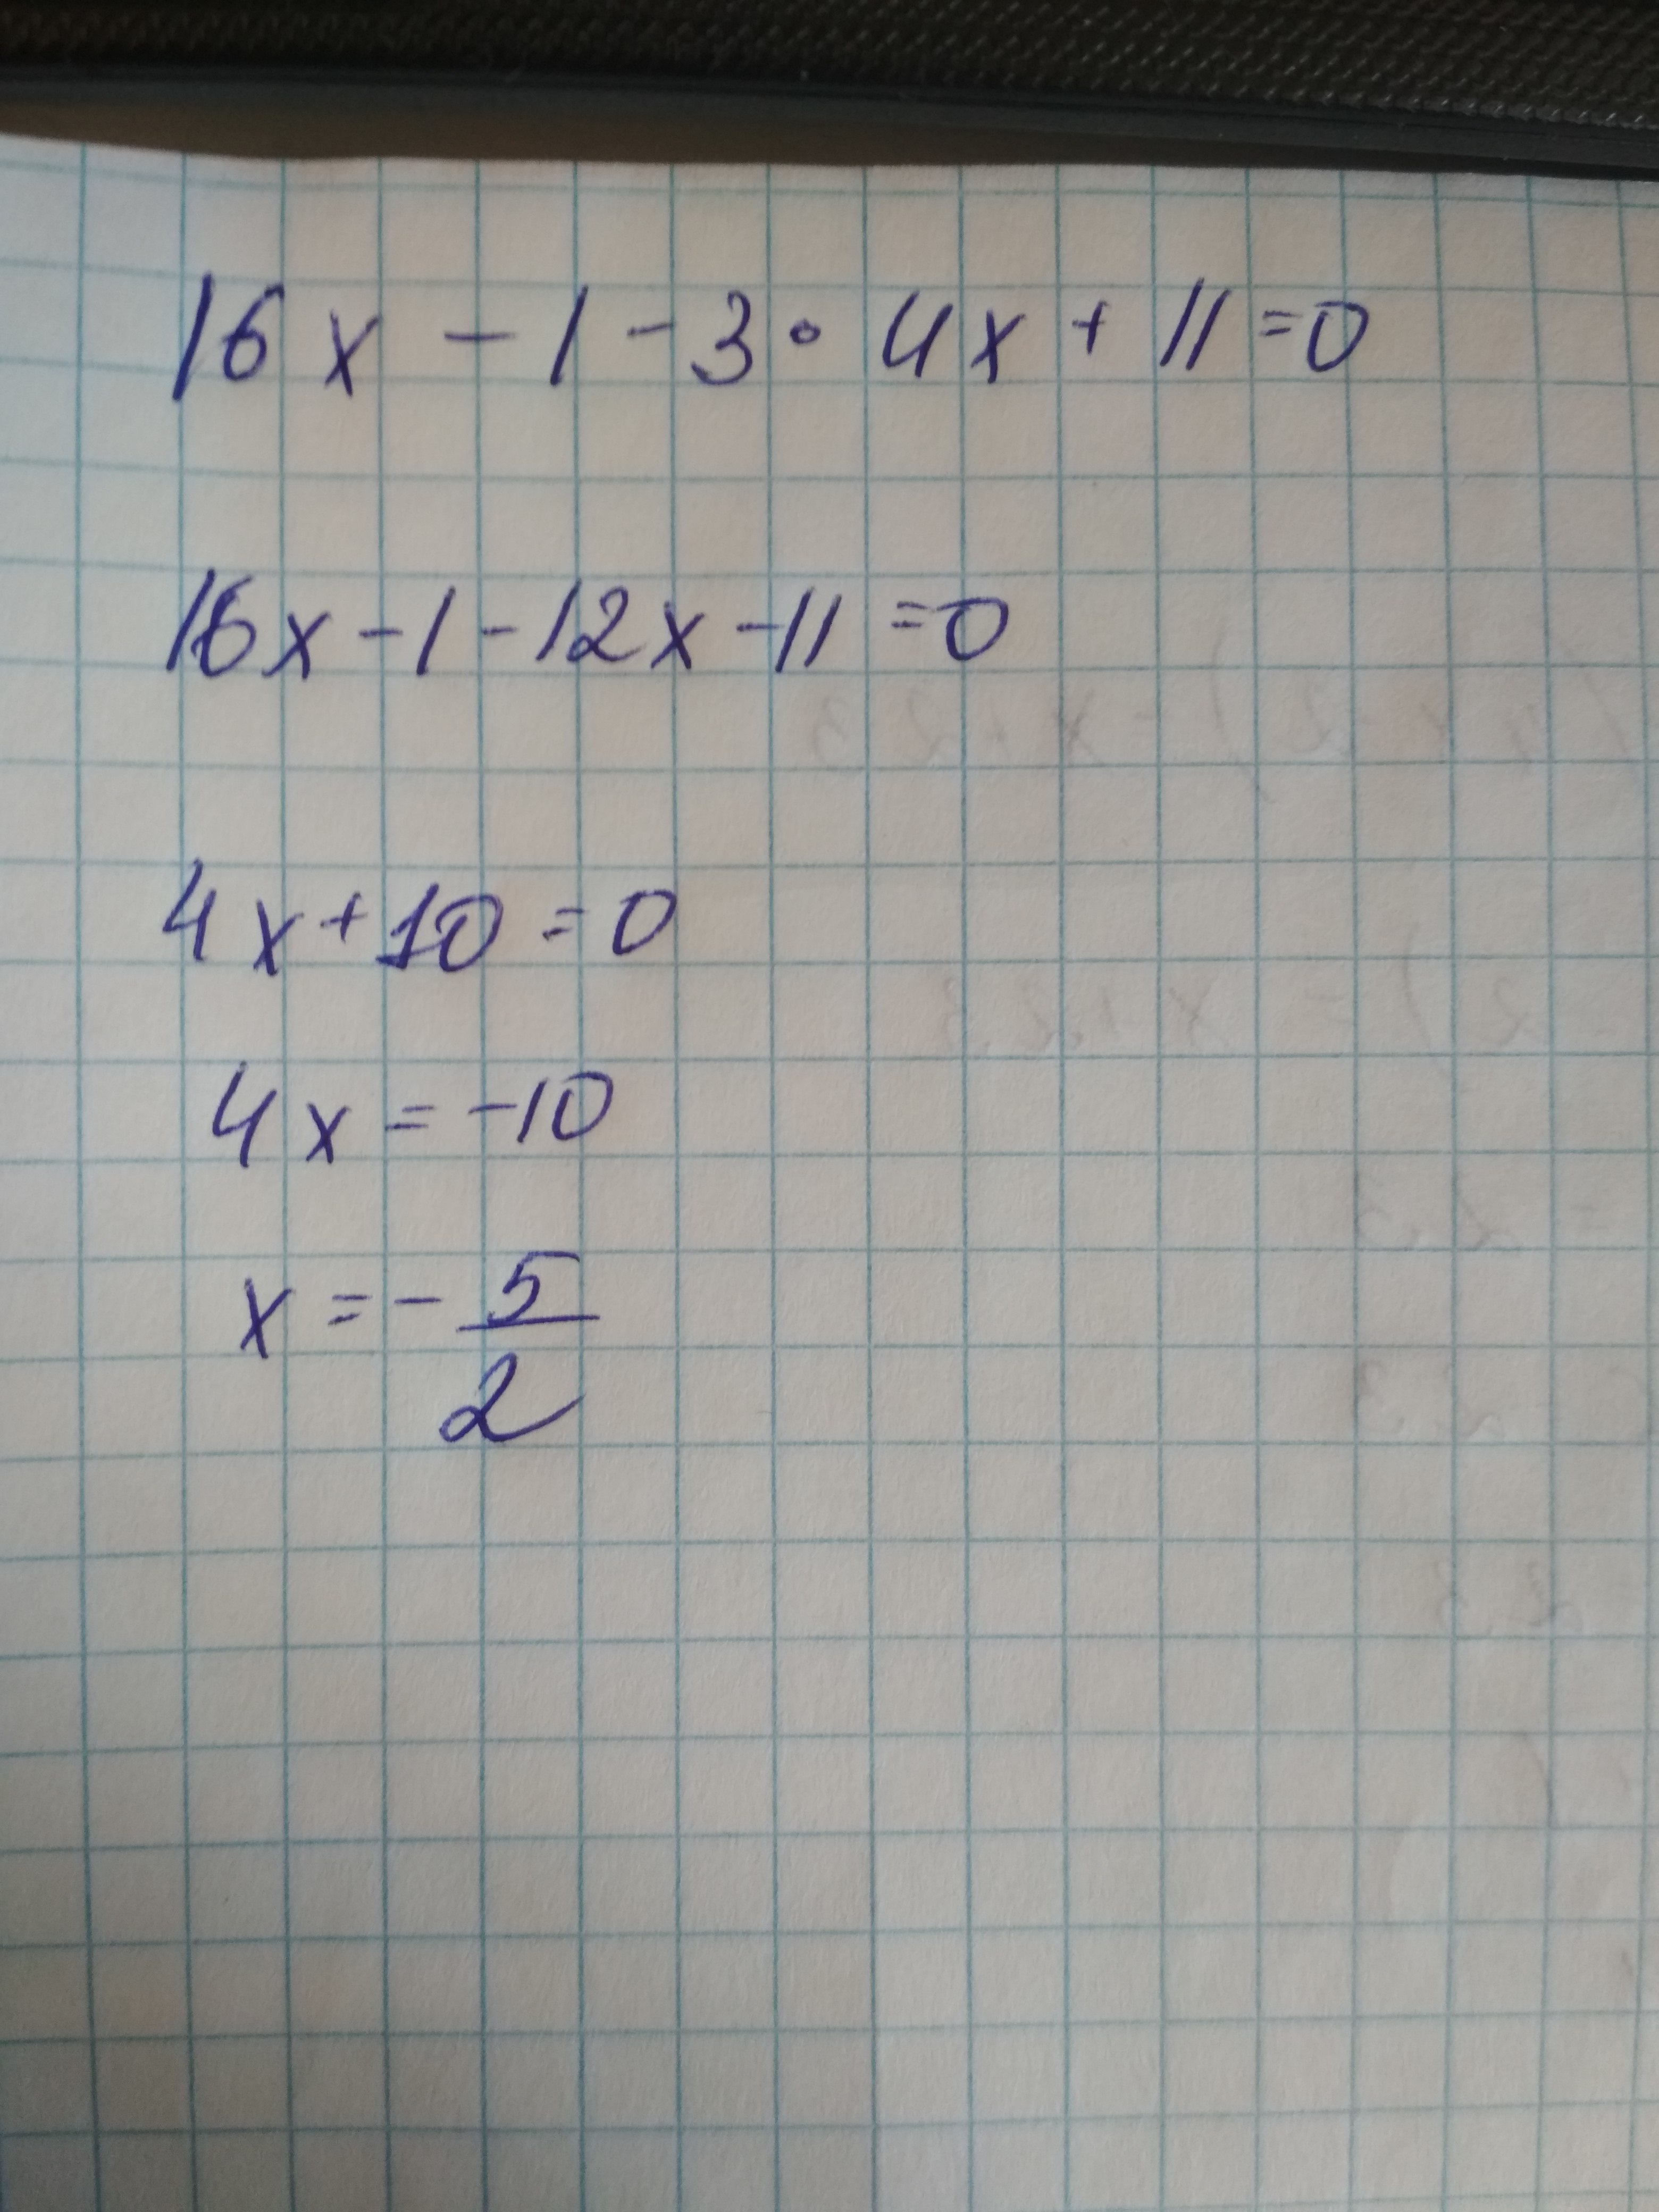 16x - 1 - 3 · 4x + 11 = 0
16x - 1 - 12x - 11 = 0
4x + 10 = 0
4x = -10
x = - 5/2